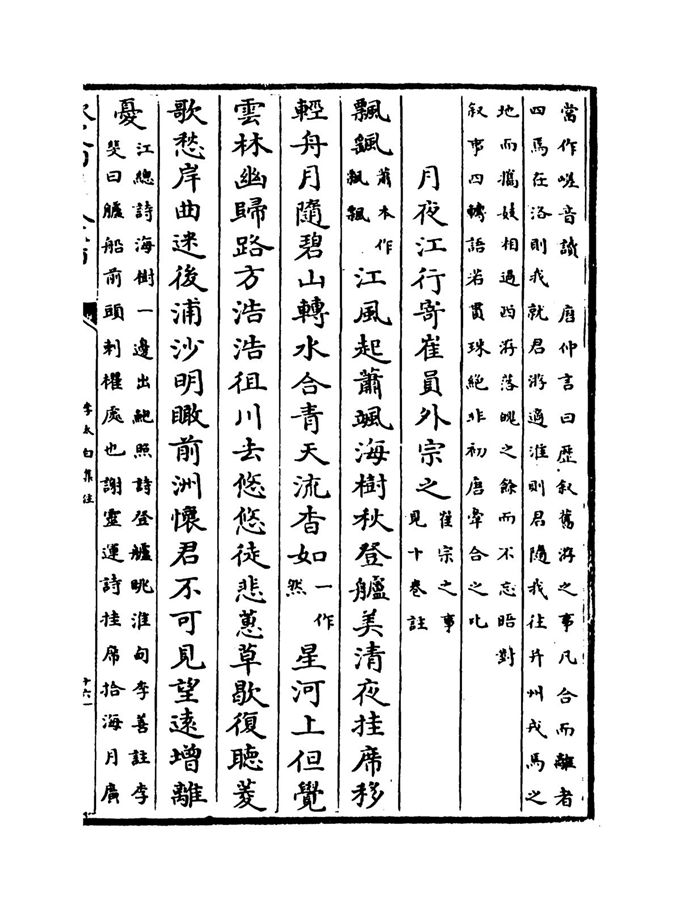 當作嗟音讀 唐仲言曰歴叙舊游之事凡合而離者
四馬在洛則我就君游適淮則君隨我往并州戎馬之
地而攜妓相過西游落魄之餘而不忘晤對
叙事四轉語若貫珠絕非初唐牽合之比
月夜江行寄崔員外宗之
崔宗之事
見十卷註
飄飄
蕭本作
飄飄
江風起蕭颯海樹秋登艫美清夜挂席移
輕舟月隨碧山轉水合青天流杳如
一作
然
星河上但覺
雲林幽歸路方浩浩徂川去悠悠徒悲蕙草歇復聽菱
歌愁岸曲迷後浦沙明瞰前洲懷君不可見望遠增離
憂
江總詩海樹一邊出鮑照詩登艫眺淮甸李善註李
斐曰艫船前頭刺櫂處也謝靈運詩挂席拾海月廣
李太白集注
十六